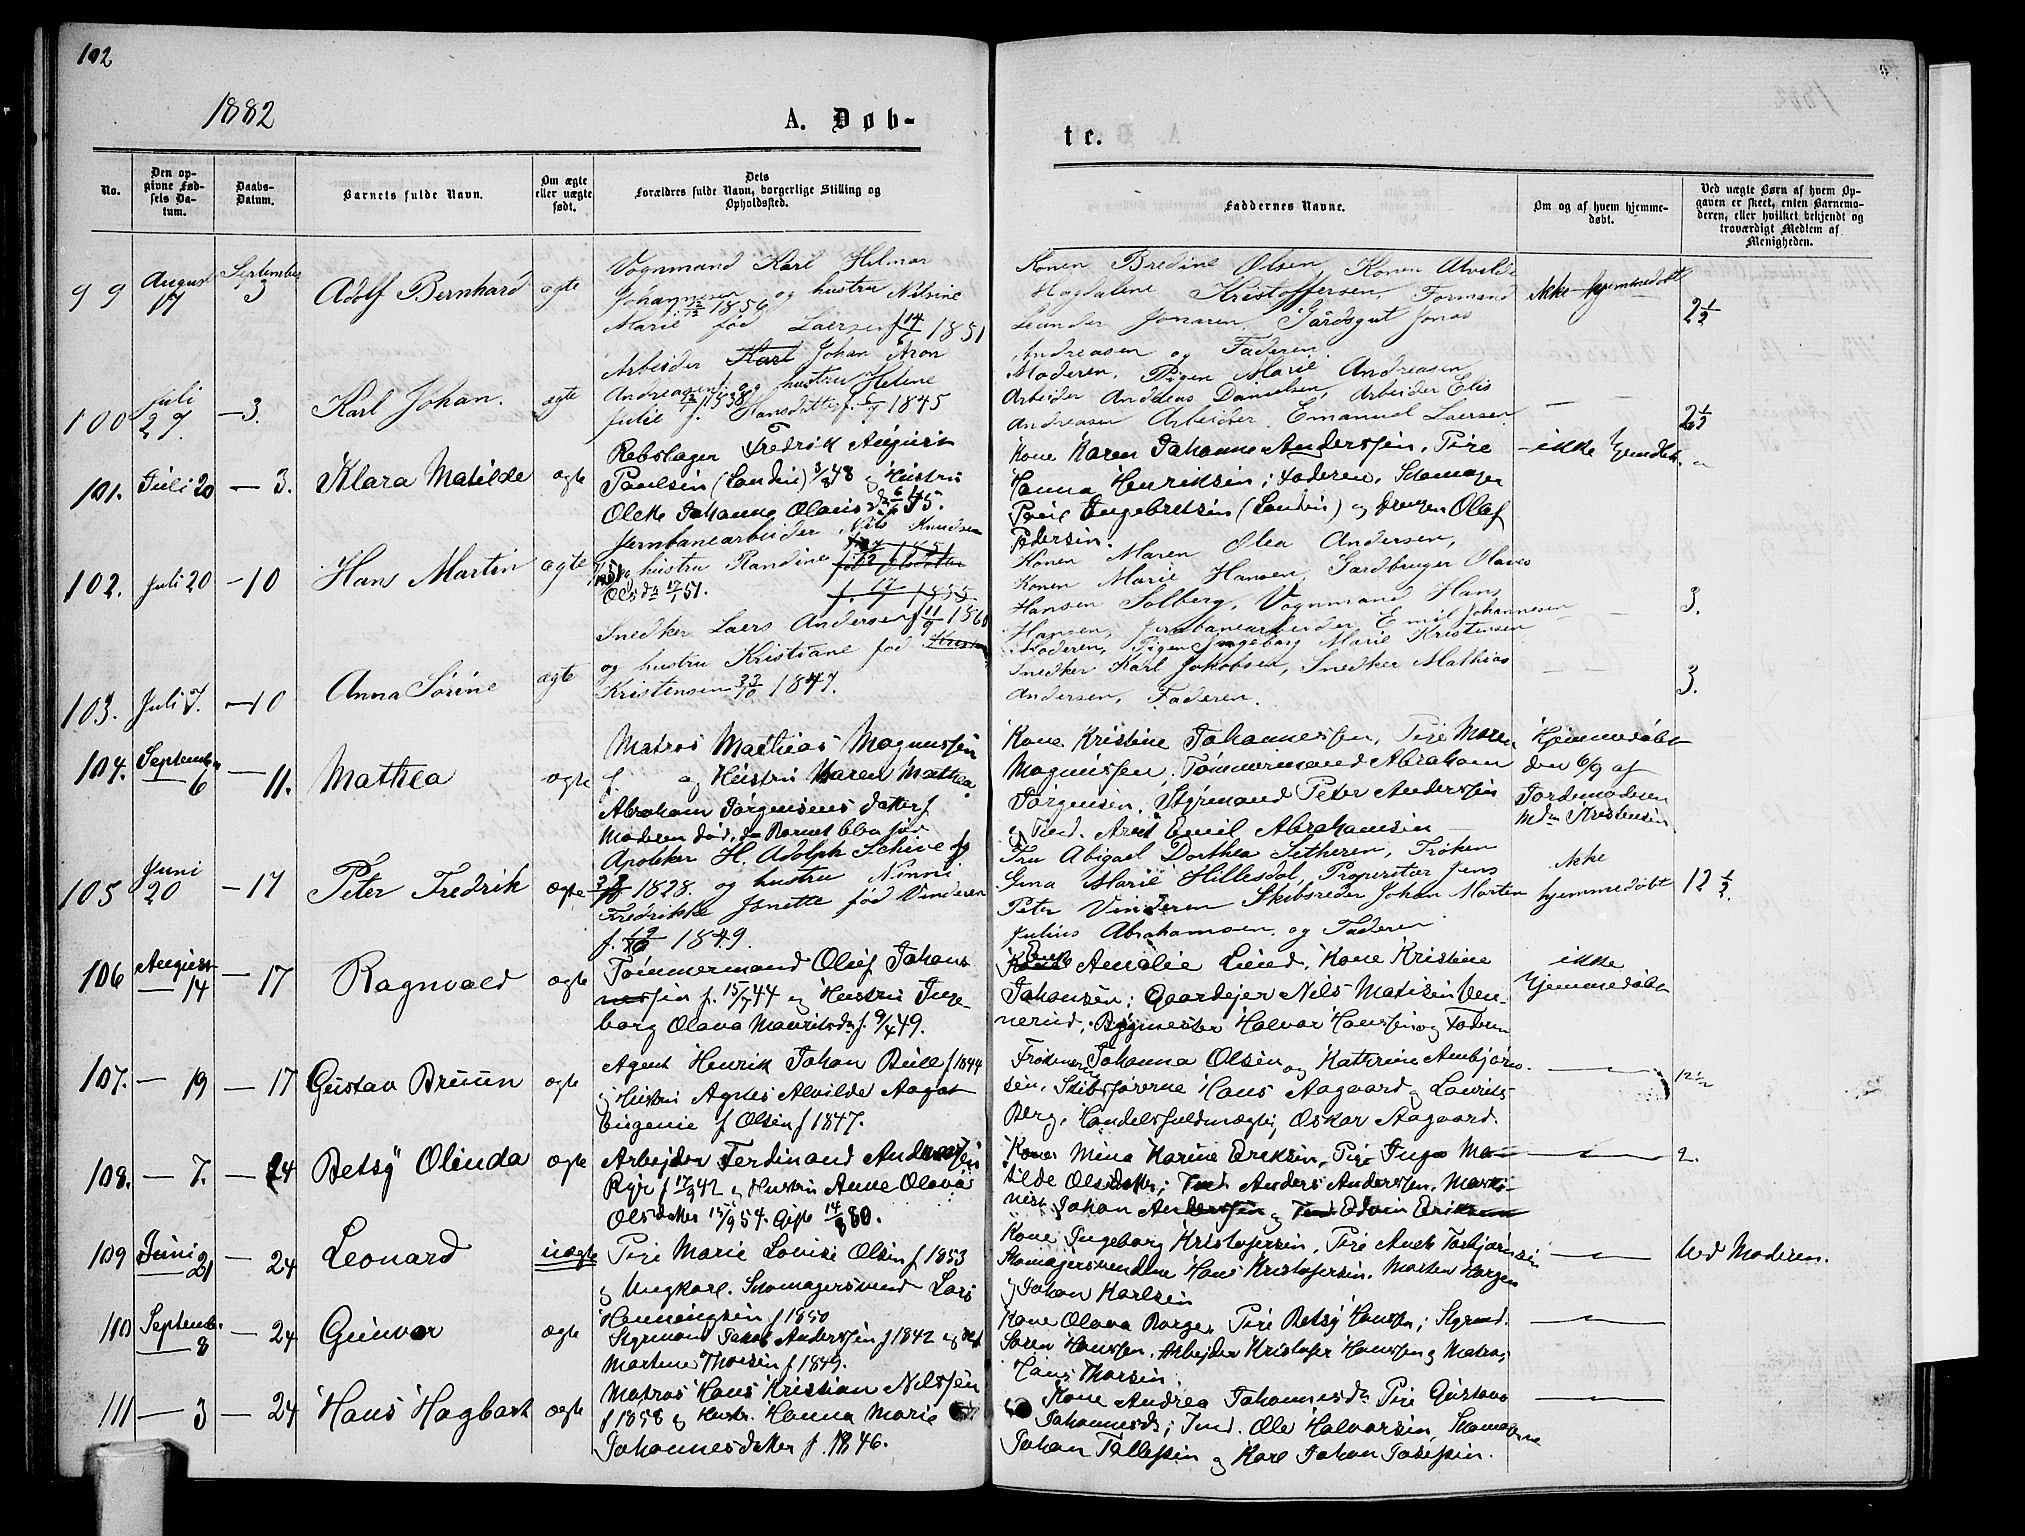 102
1882
A. Døb-
te.
No.
Den op-
givne Fød-
sels Da-
tum.
Daabs-
Datum.
Barnets fulde Navn.
Om ægte
eller uægte
født.
Dets
Forældres fulde Navn, borgerlige Stilling og
Opholdssted.
Faddernes Navne.
Om og af hvem hjemme-
døbt.
Ved uægte Børn af hvem Op-
gaven er skeet, enten Barnemo-
deren, eller hvilket bekjendt og
troværdigt Medlem af
Menigheden.
99
August
17
September
3
Adolf Bernhard
ægte
Vognmand Karl Hilmar
Johannesen og hustru Nilsine
1856
Marie fød Laersen f 14/6 1851
Konen Bredine Olsen, Konen Alvilde
Magdalene Kristoffersen, Formand
Leander Jonasen, Gårdsgut Jonas
Andreasen og Faderen.
ikke hjemmedøbt
2 1/2
100
Juli
29.
— 3.
Karl Johan.
ægte
Arbeider Karl Johan Aron
Andreasen og hustru Helene
Julie Hansdatter 1845
Moderen, Pigen Marie Andreasen
Arbeider Andreas Danielsen, Arbeider Elis
Andreasen Arbeider Emanuel Laersen
— —
2 1/2
101.
Juli 20
— 3.
Klara Matilde
ægte
Rebslager Fredrik August
Paulsen (Landin) 3/8 48 og Hustru
Oleke Johanne Olausda 6/6 45.
Kone Karen Johanne Anderssen, Pige
Hanna Henriksen; Faderen, Skomager
Engebretsen (Landin) og Drengen Olaf
Pedersen.
— ikke hjemdøb.
102.
Juli 20
— 10
Hans Martin
ægte
Jernbanearbeider Nils Knudsen
og hustru Randine
Olsda 17/1 51.
Konen Maren Olea Andersen,
Konen Marie Hansen, Gardbruger Olaves
Hansen Solberg, Vognmand Hans
Hansen, Jernbanearbeider Emil Johannesen
—
3.
103.
Juli 7.
— 10
Anna Sørine
ægte
Snedker Laers Andersen f 11/9 1860
og hustru Kristiane fød
Kristensen 1847.
Moderen, Pigen Ingeborg Marie Kristensen
Snedker Karl Jakobsen, Snedker Mathias
Andersen, Faderen.
— —
3.
104.
September
6
— 11.
Mathea
ægte
Matros Mathias Magnussen
f. og Hustru Maren Mathea
Abraham Jørgensens datter f
Moderen død, da Barnet blev før
Kone Kristine Johannessen, Pige Maren
Magnussen, Tømmermand Abraham
Jørgensen, Styrmand Peter Anderssen
og Emil Abrahamsen
Hjemmedøbt
den 6/9 af
Jordemoderen
Mdm Kristensen
105
Juni
20
— 17
Peter Fredrik
ægte
Apoteker H. Adolph Schive f
1828. og hustru Ninni
Fredrikke Jonette fød Vinderen
f. 1849.
Fru Abigael Dorthea Setheren, Frøken
Gina Marie Hillesdal, Proprietær Jens
Peter Vinderen Skibsreder Johan Morten
Julius Abrahamsen og Faderen
ikke
hjemmedøbt
12 1/2.
106
August
— 14
— 17
Ragnvald
ægte
Tømmermand Oluf Johans
nessen f. 15/7 44 og Hustru Inge-
borg Olava Mauritsda f. 9/4 49.
Enke Amalie Lund, Kone Kristine
Johansen; Gaardejer Nils Matisen Ven-
nerud, Bygmester Halvor Hanssen og Faderen
ikke
hjemmedøbt
107.
— 19
— 17
Gustav Bruun
ægte
Agent Henrik Johan Bull f 1844
og Hustru Agnes Alvilde Aagot
Eugenie f Olsen f 1847.
Frøknerne Johanna Olsen og Kathrine Ambjørn-
sen, Skibsførerne Hans Aagaard og Laurits
Berg, Handelsfuldmægtig Oskar Aagaard.
—
12 1/2
108.
— 7.
— 24
Betsÿ Olinda
ægte
Arbejder Ferdinand Andreassen
Ryr f 17/9 42 og Hustru Anne Olava
Olsdatter 15/9 54. Gift 14/8 80.
Kone Mina Karine Eriksen, Pige Inga Ma-
tilde Olsdatter; Ind Anders Anderssen, Marti-
nius Johan Anderssen og Ind Edvin Eriksen
—
2.
109
Juni
21
— 24
Leonard
uægte
Pige Marie Lovise Olsen f 1853
og Ungkarl. Skomagersvend Lars
Henningsen f 1850
Kone Ingeborg Kristofersen, Pige Anet Torbjørnsen
Skomagersvendene Hans Kristofersen, Morten Horgen
og Johan Karlsen
—
Ved Moderen.
110
Septemb.
— 8
— 24
Gunvor
ægte
Styrmand Jakob Anderssen f 1842 og
Martine Thorsen f 1849.
Kone Olava Borge, Pige Betsÿ Hanssen; Styrmd.
Søren Hanssen, Arbejder Kristofer Hanssen og Matros
Hans Thorsen.
—
111
— 3
— 24
Hans Hagbart
ægte
Matros Hans Kristian Nilssen
f 1858 og Hustr. Hanna Marie
Johannesdatter f. 1846.
Kone Andrea Johannesda Pige Gustava
Johannesda; Ind. Ole Halvorsen, Skomagerne
Johan Tollefsen og Karl Johan Josefsen.
—